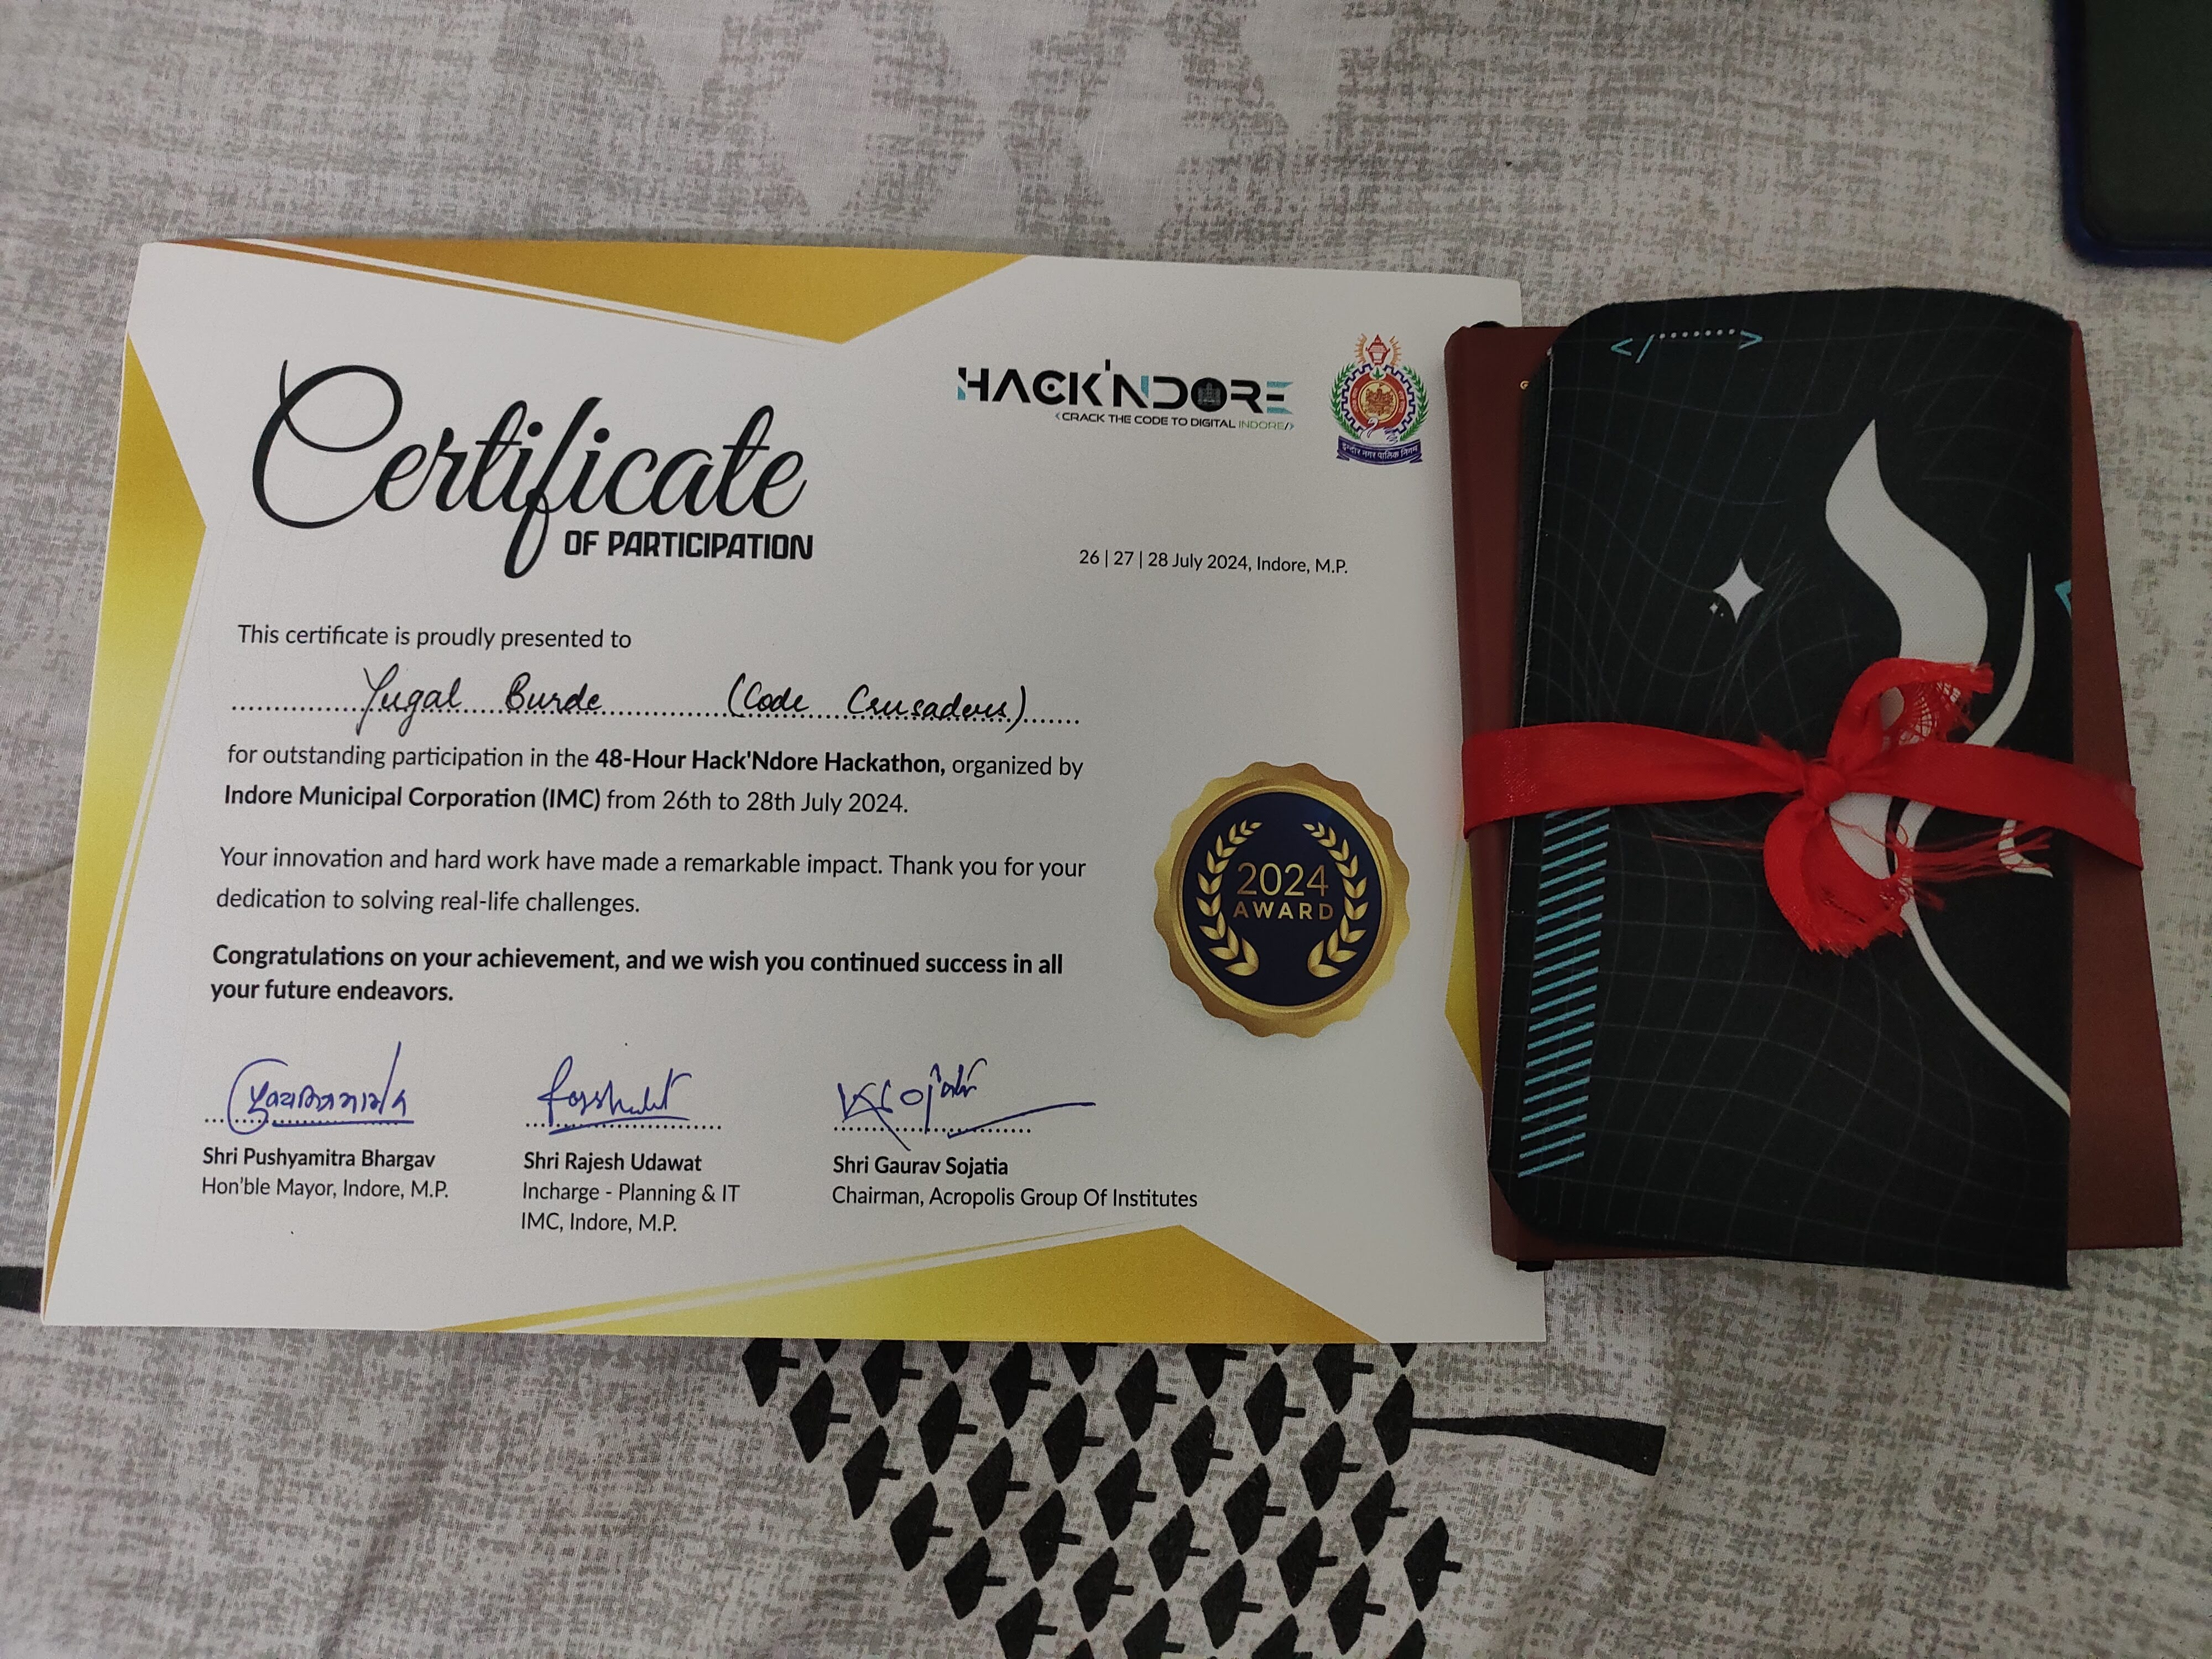 Certificate
OF PARTICIPATION
HACK'NDORE
<CRACK THE CODE TO DIGITAL INDORE/>
इन्दौर नगर पालिक निगम
26 | 27 | 28 July 2024, Indore, M.P.
This certificate is proudly presented to
Yugal Burde (Code Crusaders)
for outstanding participation in the 48-Hour Hack'Ndore Hackathon, organized by
Indore Municipal Corporation (IMC) from 26th to 28th July 2024.
Your innovation and hard work have made a remarkable impact. Thank you for your
dedication to solving real-life challenges.
Congratulations on your achievement, and we wish you continued success in all
your future endeavors.
2024
AWARD
Shri Pushyamitra Bhargav
Hon'ble Mayor, Indore, M.P.
Shri Rajesh Udawat
Incharge - Planning & IT
IMC, Indore, M.P.
Shri Gaurav Sojatia
Chairman, Acropolis Group Of Institutes
</.......>